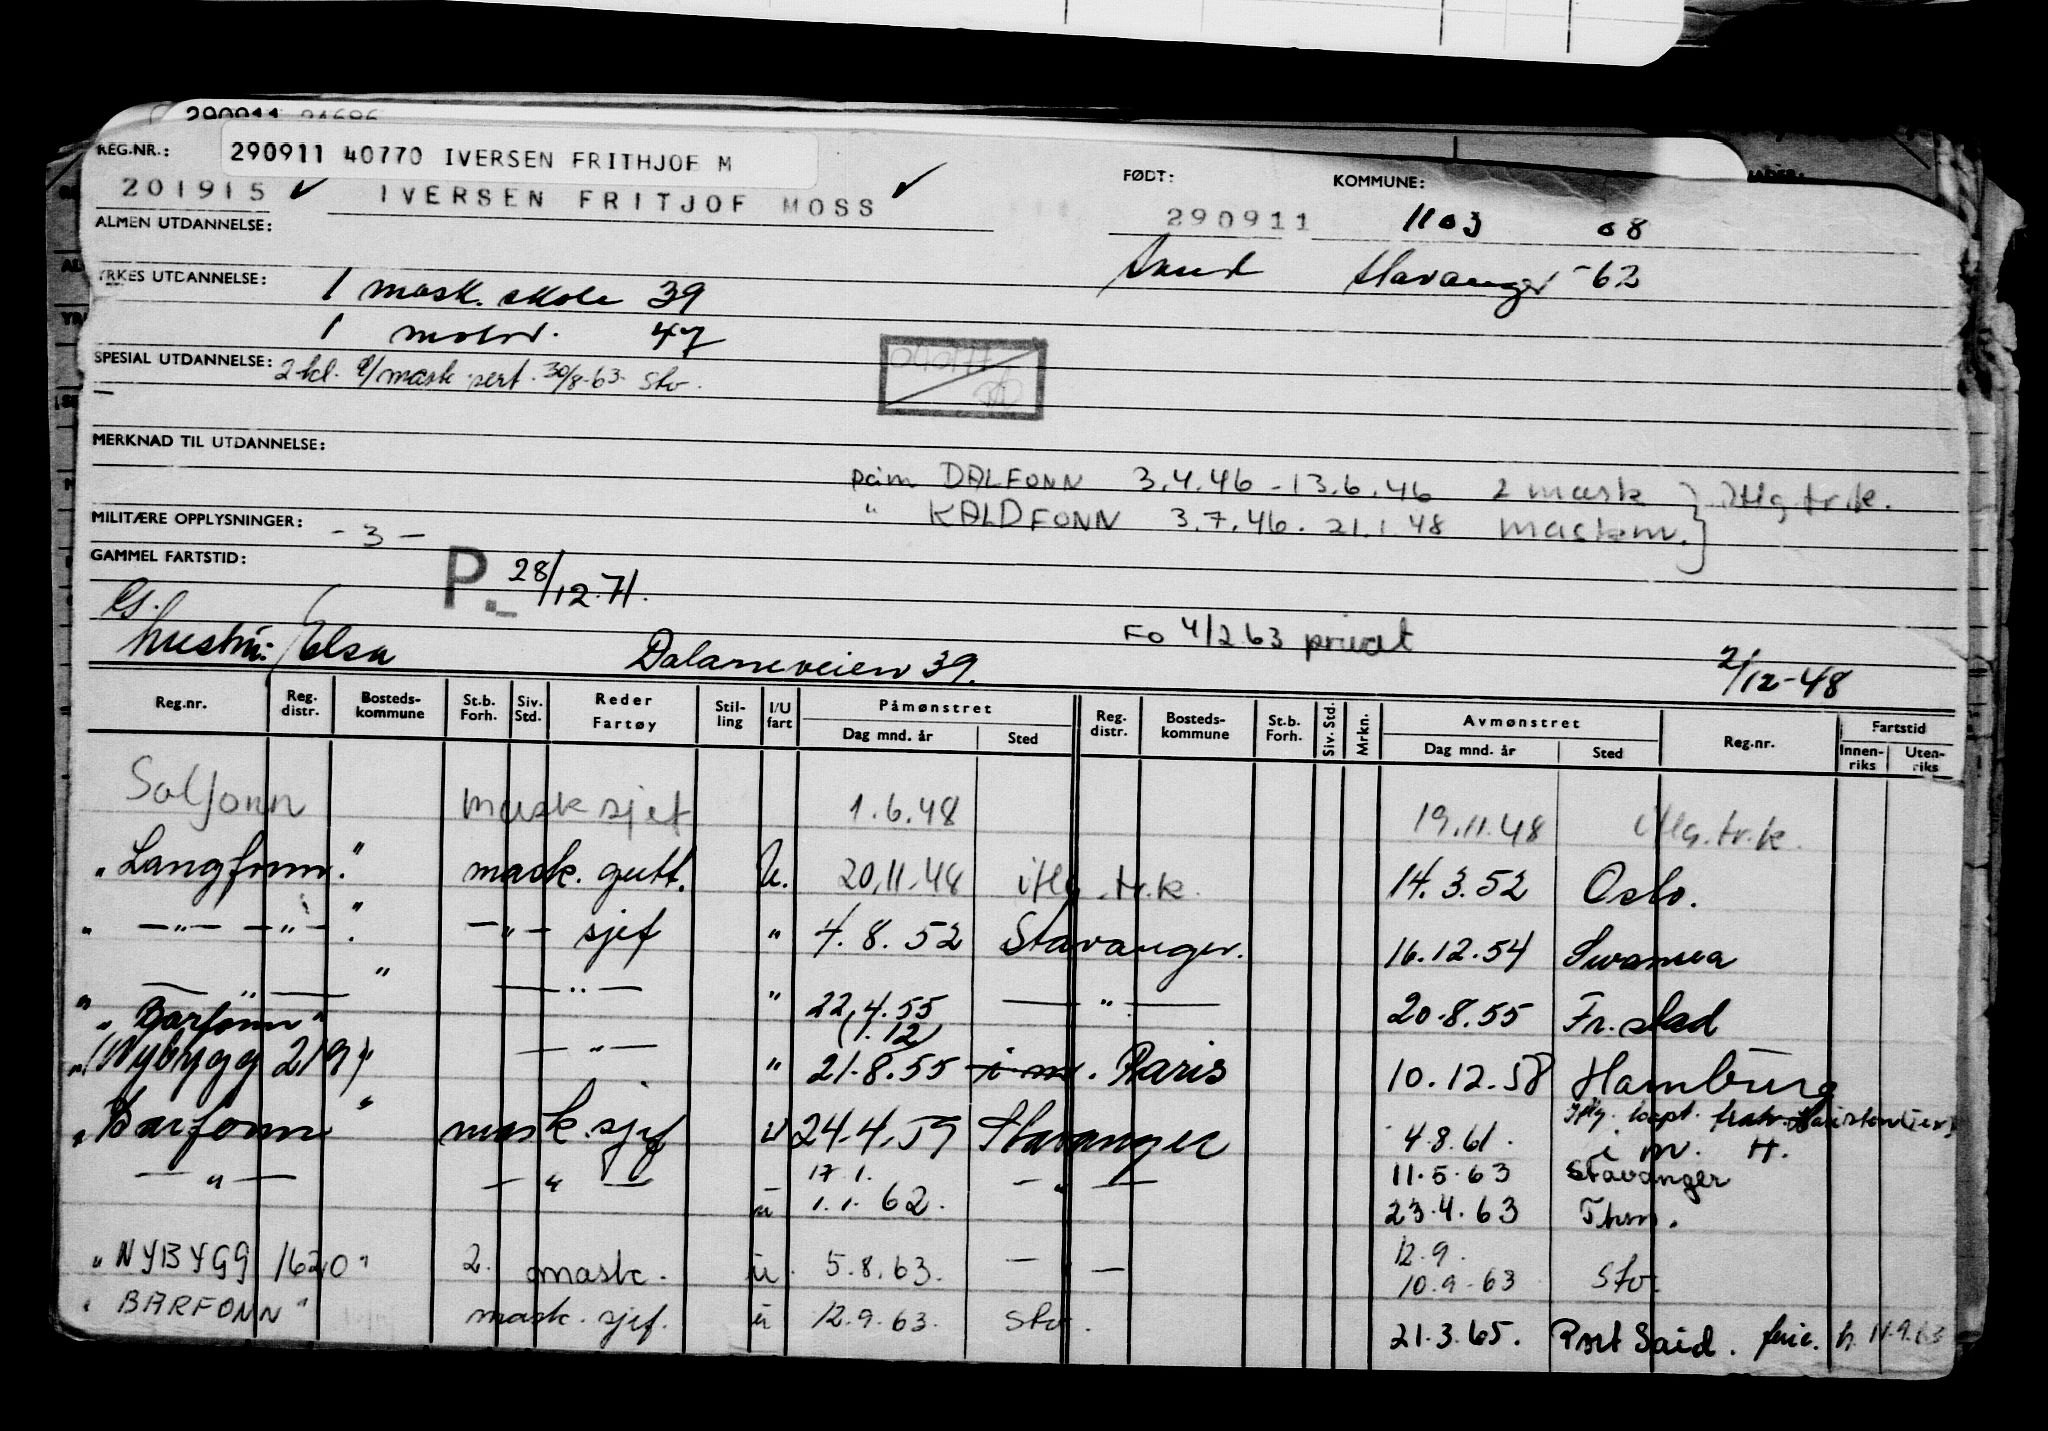 290911
REG.NR.: 290911 40770 IVERSEN FRITHJOF M
FØDT: KOMMUNE:
201915 ✓ IVERSEN FRITJOF MOSS ✓ 290911 1103 08
ALMEN UTDANNELSE:
Stavanger -62
YRKES UTDANNELSE: 1 mask. skole 39
1 motor. 47
SPESIAL UTDANNELSE: 2 kl. mask. sert. 30/8-63. Stv.
MERKNAD TIL UTDANNELSE:
påm DALFONN 3.4.46 - 13.6.46 2 mask } iflg tr.k.
MILITÆRE OPPLYSNINGER: - 3 - " KALDFONN 3.7.46. 21.1.48 maskm.
GAMMEL FARTSTID: P. 28/12.71.
G.
hustru: Elsa Dalaneveien 39. FO 4/2 63 privat 2/12-48
Reg.nr. Reg. distr. Bosteds- kommune St.b. Forh. Siv. Std. Reder Fartøy Stil- ling I/U fart Påmønstret Dag mnd. år Sted Reg. distr. Bosteds- kommune St.b. Forh. Siv. Std. Mrkn. Avmønstret Dag mnd. år Sted Reg.nr. Fartstid Innen- riks Uten- riks
Solfonn mask sjef 1.6.48 19.11.48 iflg.tr.k.
"Langfonn." mask. gutt. U. 20.11.48 iflg.tr.k. 14.3.52 Oslo.
" — " — — " — " — " — sjef " 4.8.52 Stavanger. 16.12.54 Swansea
" — " — " — " — " 22.4.55 — " — 20.8.55 Fr.stad
"Barfonn" (1.12)
"(Nybygg 219)" — " — " 21.8.55 i m. Paris 10.12.58 Hamburg
"Barfonn" mask. sjef U 24.4.59 Stavanger 4.8.61. i m. H.
— " — — " — 17.1. — " — 11.5.63 Stavanger
u 1.1.62. 23.4.63 Thm.
"NYBYGG 1620" 2. mask. u. 5.8.63. — " — 12.9. 10.9.63 Stv.
"BARFONN" mask. sjef. u 12.9.63. Stv. 21.3.65. Port Said. ferie. h. 11.9.63